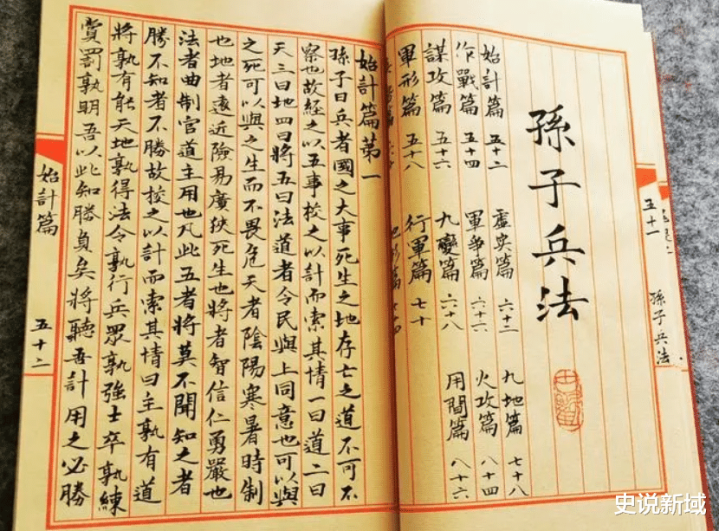 孫子兵法
五十一
孫子兵法
始計篇 五十二
作戰篇 五十四
謀攻篇 五十六
軍形篇 五十八
虛實篇 六十二
軍爭篇 六十六
九變篇 六十八
行軍篇 七十
九地篇 七十八
火攻篇 八十四
用間篇 八十六
始計篇第一
孫子曰兵者國之大事死生之地存亡之道不可不
察也故經之以五事校之以計而索其情一曰道二曰
天三曰地四曰將五曰法道者令民與上同意也可以與
之死可以與之生而不畏危天者陰陽寒暑時制
也地者遠近險易廣狹死生也將者智信仁勇嚴也
法者曲制官道主用也凡此五者將莫不聞知之者
勝不知者不勝故校之以計而索其情曰主孰有道
將孰有能天地孰得法令孰行兵眾孰強士卒孰練
賞罰孰明吾以此知勝負矣將聽吾計用之必勝
始計篇
五十二
史说新域